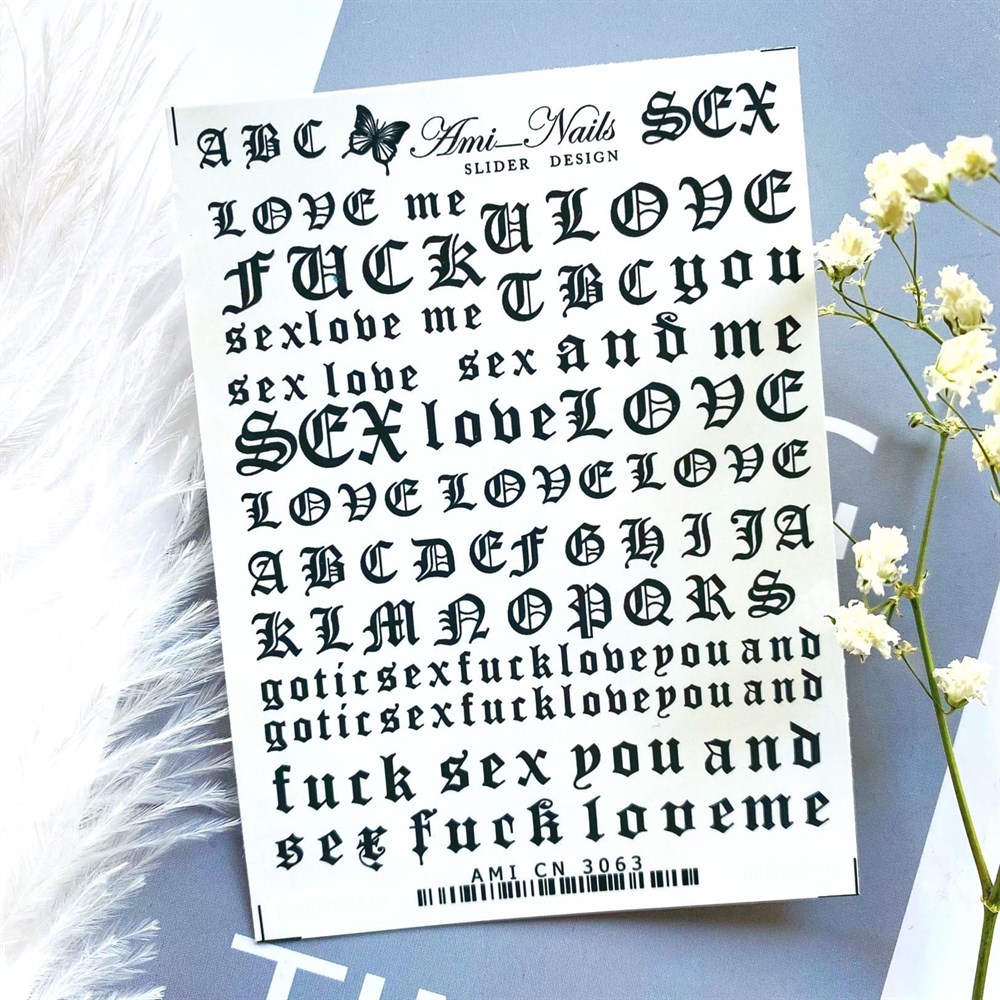 A B C Ami_Nails SEX
SLIDER DESIGN
LOVE me U LOVE
FUCK TBC you
sexlove me
sex love sex and me
SEX love LOVE
LOVE LOVE LOVE
ABCDEF GHIJA
KLMNOPQRS
goticsexfuckloveyouand
goticsexfuckloveyouand
fuck sex you and
sex fuck loveme
AMI CN 3063